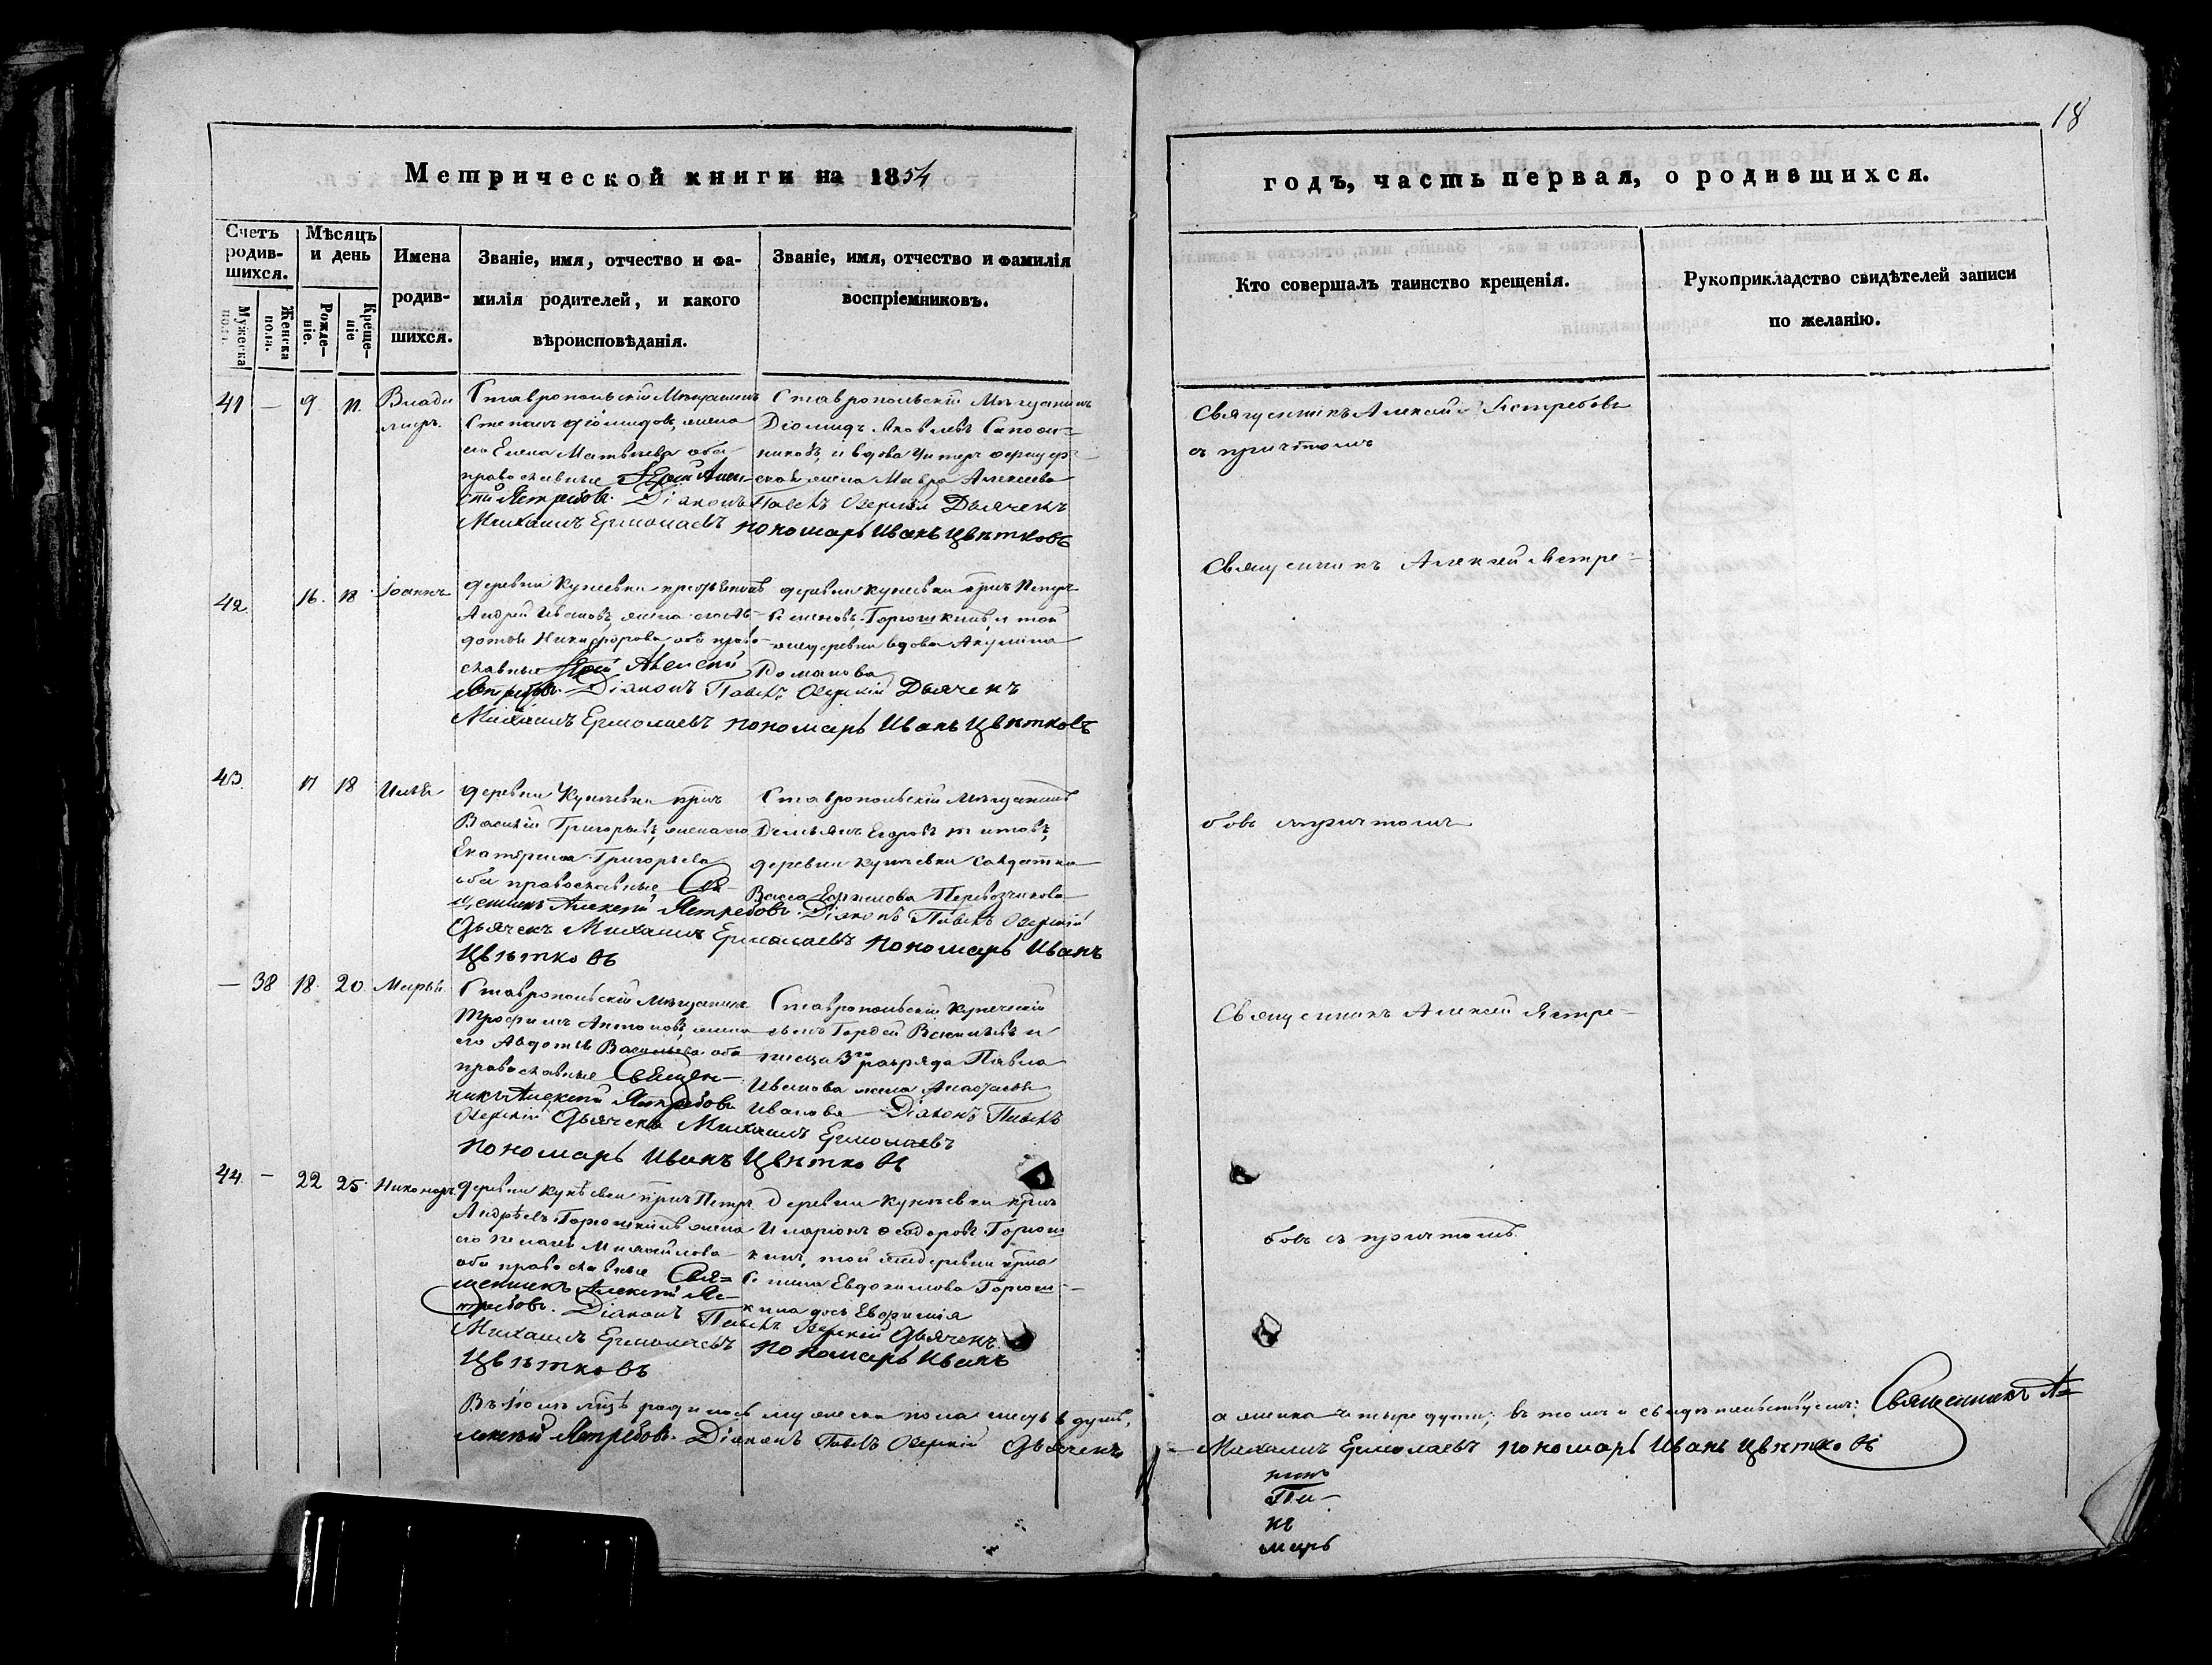 18
Метрической книги на 1854
годъ, часть первая, о родившихся.
Счетъ родив- шихся.
Мужеска пола.
Женска пола.
Мѣсяцъ и день
Рожде- ніе.
Креще- ніе
Имена родив- шихся.
Званіе, имя, отчество и фа- милія родителей, и какого вѣроисповѣданія.
Званіе, имя, отчество и фамилія воспріемниковъ.
Кто совершалъ таинство крещенія.
Рукоприкладство свидѣтелей записи по желанію.
41 — 9 11. Влади
миръ.
Ставропольскій Мѣщанинъ
Степанъ Діомидовъ, жена
его Елена Матвѣева оба
православные Іерей Алек-
сѣй Ястребовъ. Діаконъ Павелъ Озерскій Дьячекъ
Михаилъ Ермолаевъ пономарь Иванъ Цвѣтковъ
Ставропольскій Мѣщанинъ
Діомидъ Яковлевъ Сапож-
никовъ, и вдова Унтеръ офицер-
ская жена Мавра Алексѣева
Священникъ Алексѣй Ястребовъ
съ причтомъ
42. 16. 18 Іоаннъ
деревни Кунеевки крестьянинъ
Андрей Ивановъ, жена его Ав-
дотья Никифорова оба право-
славные Іерей Алексѣй
Ястребовъ. Діаконъ Павелъ Озерскій Дьячекъ
Михаилъ Ермолаевъ пономарь Иванъ Цвѣтковъ
деревни Кунеевки крнъ Петръ
Семеновъ Горюшкинъ, и той
же деревни вдова Акулина
Романова
Священникъ Алексѣй Ястре-
43. 17 18 Илья
деревни Кунеевки крнъ
Василій Григорьевъ, жена его
Екатерина Григорьева
оба православные Свя-
щенникъ Алексѣй Ястребовъ. Діаконъ Павелъ Озерскій
Дьячекъ Михаилъ Ермолаевъ пономарь Иванъ
Цвѣтковъ
Ставропольскій Мѣщанинъ
Демьянъ Егоровъ Титовъ,
деревни Кунеевки солдатка
Васса Перевозчикова
бовъ съ причтомъ
— 38 18. 20. Марья
Ставропольскій Мѣщанинъ
Трофимъ Антоновъ, жена
его Авдотья Васильева оба
православные Священ-
никъ Алексѣй Ястребовъ
Озерскій Дьячекъ Михаилъ Ермолаевъ
пономарь Иванъ Цвѣтковъ
Ставропольскій Купеческій
сынъ Гордей Васильевъ и
писца 3го разряда Павла
Иванова жена Анастасья
Иванова Діаконъ Павелъ
Священникъ Алексѣй Ястре-
44. — 22 25. Никаноръ
деревни Кунѣевки крнъ Петръ
Андрѣевъ Горюшкинъ жена
его Пелагея Михайлова
оба православные Свя-
щенникъ Алексѣй Яс-
требовъ. Діаконъ Павелъ Озерскій Дьячекъ
Михаилъ Ермолаевъ пономарь Иванъ
Цвѣтковъ
Деревни Кунѣевки крнъ
Иларіонъ Ѳеодоровъ Горюш
кинъ, той же деревни крна
Семена Евдокимова Горюш-
кина дочь Евфимія
бовъ съ причтомъ.
душъ,
а женска четыре души; въ томъ и свидѣтельствуемъ: Священникъ А-
лексѣй Ястребовъ. Діаконъ Павелъ Озерскій Дьячекъ
Михаилъ Ермолаевъ пономарь Иванъ Цвѣтковъ
никъ
Па-
къ
марь